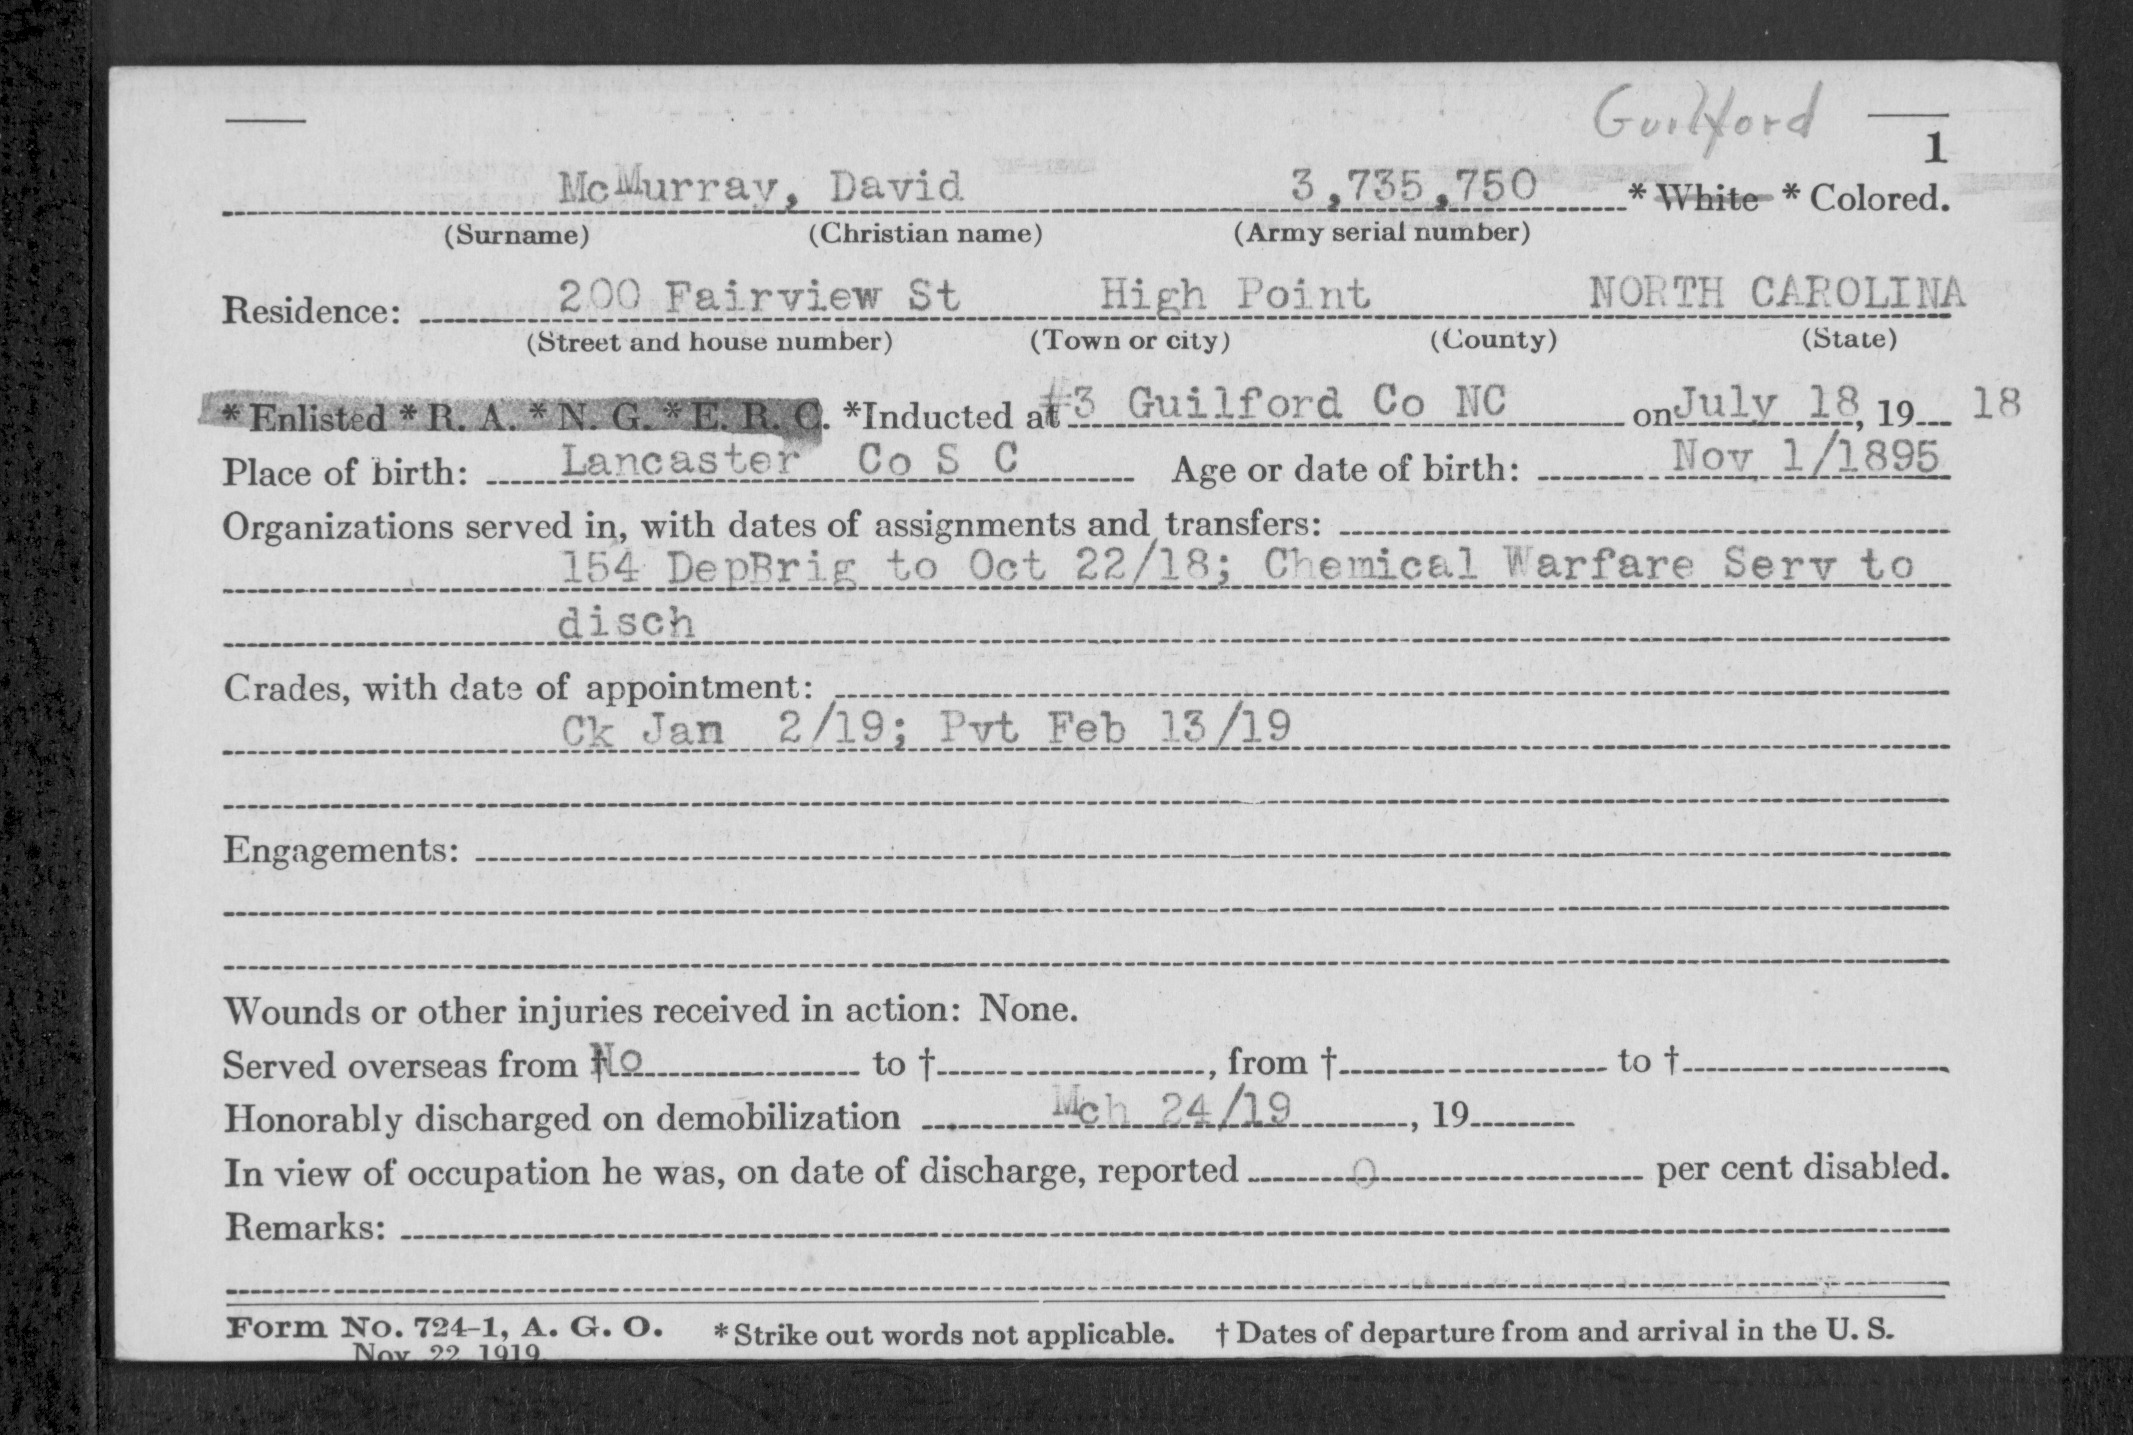 Guilford
1
McMurray, David 3,735,750 * White * Colored.
(Surname) (Christian name) (Army serial number)
Residence: 200 Fairview St High Point NORTH CAROLINA
(Street and house number) (Town or city) (County) (State)
* Enlisted * R. A. * N. G. * E. R. C. *Inducted at #3 Guilford Co NC on July 18, 19 18
Place of birth: Lancaster Co S C Age or date of birth: Nov 1/1895
Organizations served in, with dates of assignments and transfers:
154 DepBrig to Oct 22/18; Chemical Warfare Serv to
disch
Grades, with date of appointment:
Ck Jan 2/19; Pvt Feb 13/19
Engagements:
Wounds or other injuries received in action: None.
Served overseas from † No to †, from † to †
Honorably discharged on demobilization Mch 24/19, 19
In view of occupation he was, on date of discharge, reported 0 per cent disabled.
Remarks:
Form No. 724-1, A. G. O. * Strike out words not applicable. † Dates of departure from and arrival in the U. S.
Nov. 22, 1919.